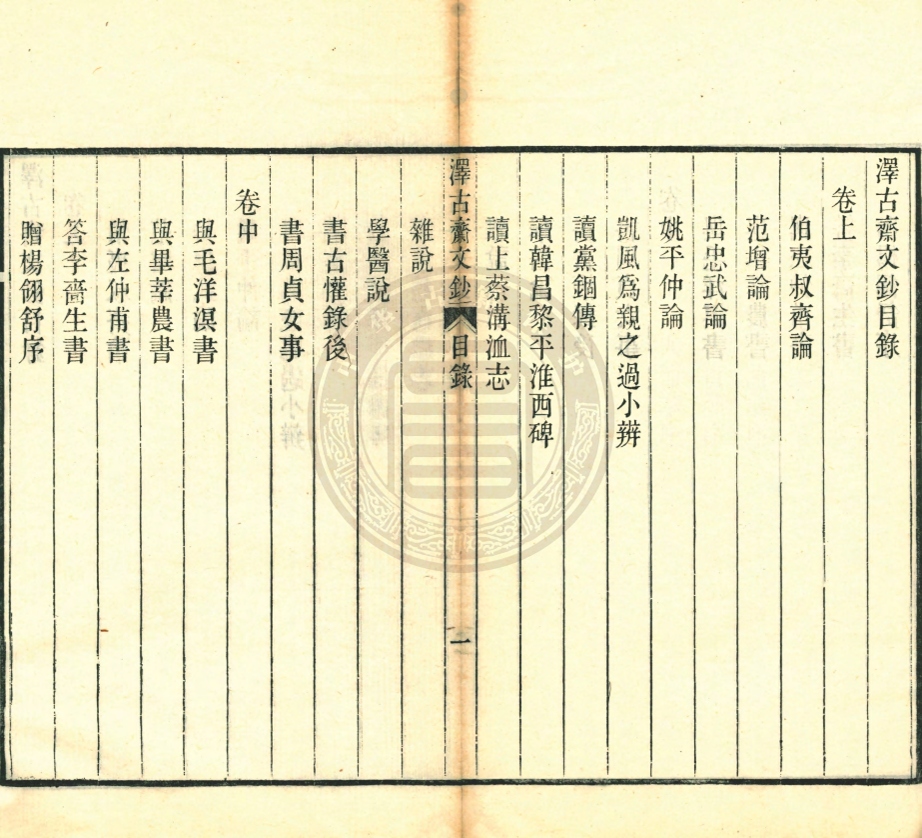 澤古齋文鈔目錄
卷上
伯夷叔齊論
范增論
岳忠武論
姚平仲論
凱風爲親之過小辨
讀黨錮傳
讀韓昌黎平淮西碑
讀上蔡溝洫志
澤古齋文鈔 目錄 一
雜說
學醫說
書古懽錄後
書周貞女事
卷中
與毛洋溟書
與畢莘農書
與左仲甫書
答李嗇生書
贈楊翎舒序